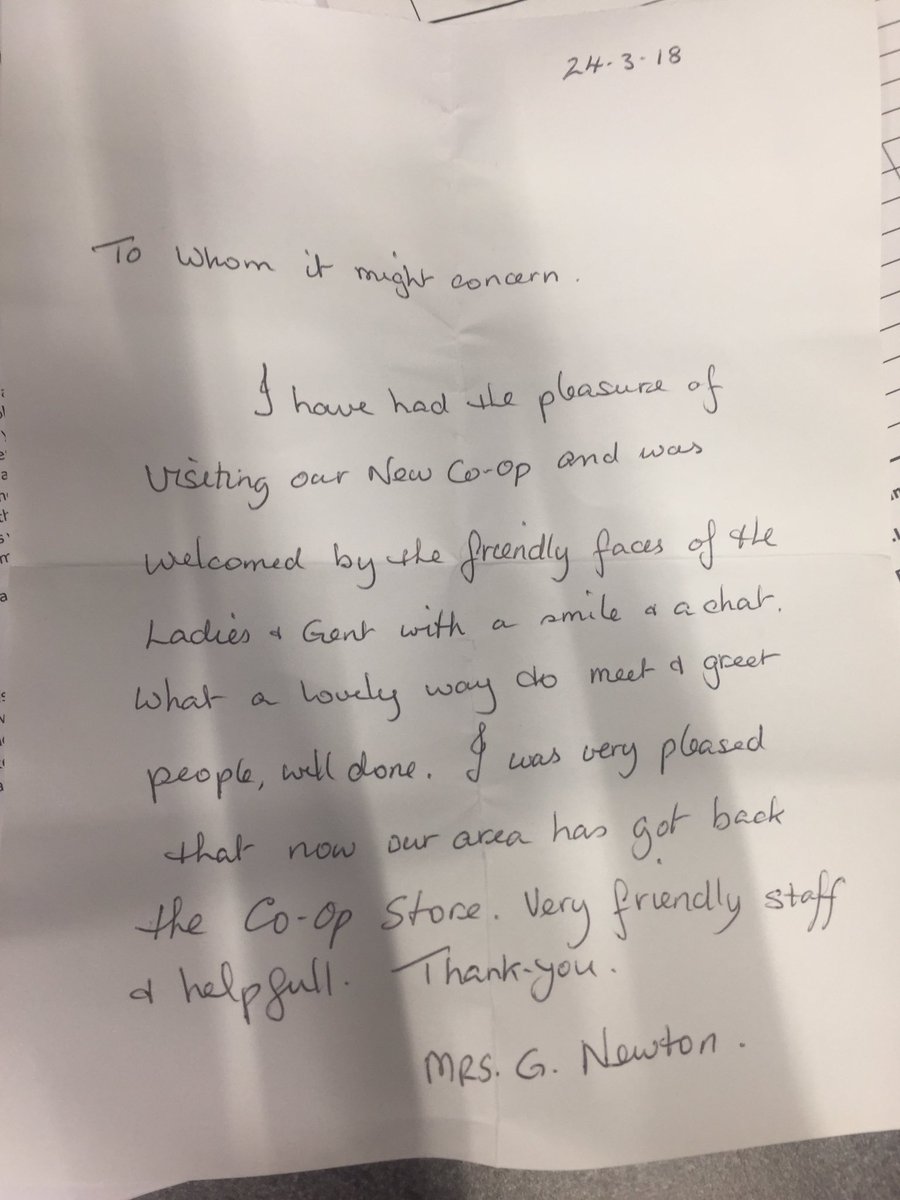 24-3-18
To Whom it might concern.
I have had the pleasure of
Visiting our New Co-op and was
welcomed by the friendly faces of the
Ladies & Gent with a smile & a chat.
What a lovely way do meet & greet
people, well done. I was very pleased
that now our area has got back
the Co-op Store. Very friendly staff
& helpfull. Thank-you.
MRS. G. Newton.